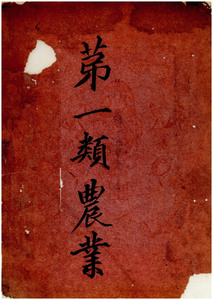 苐一類農業